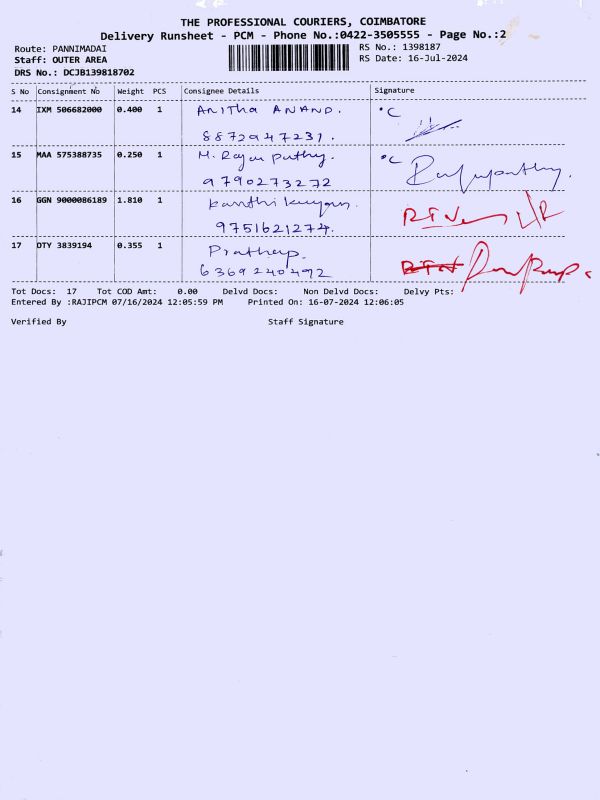 THE PROFESSIONAL COURIERS, COIMBATORE
Delivery Runsheet - PCM - Phone No.:0422-3505555 - Page No.:2
Route: PANNIMADAI
RS No.: 1398187
Staff: OUTER AREA
RS Date: 16-Jul-2024
DRS No.: DCJB139818702
S No Consignment No Weight PCS Consignee Details Signature
14 IXM 506682000 0.400 1 Anitha Anand. °C
8872947231.
15 MAA 575388735 0.250 1 M. Rajan pathy. °C
9790273272
16 GGN 9000086189 1.810 1
9751621274.
17 DTY 3839194 0.355 1 Prathap.
6369240492
Tot Docs: 17 Tot COD Amt: 0.00 Delvd Docs: Non Delvd Docs: Delvy Pts:
Entered By :RAJIPCM 07/16/2024 12:05:59 PM Printed On: 16-07-2024 12:06:05
Verified By Staff Signature